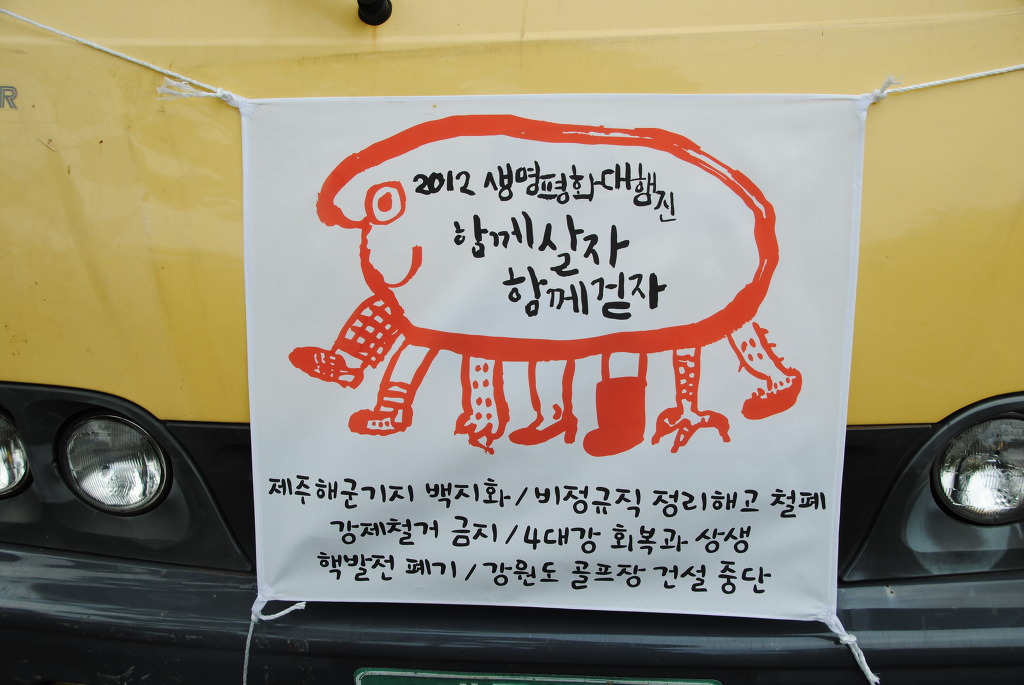 R
2012 생명평화대행진
함께살자
함께걷자
제주해군기지 백지화/비정규직 정리해고 철폐
강제철거 금지/4대강 회복과 상생
핵발전 폐기/강원도 골프장 건설 중단